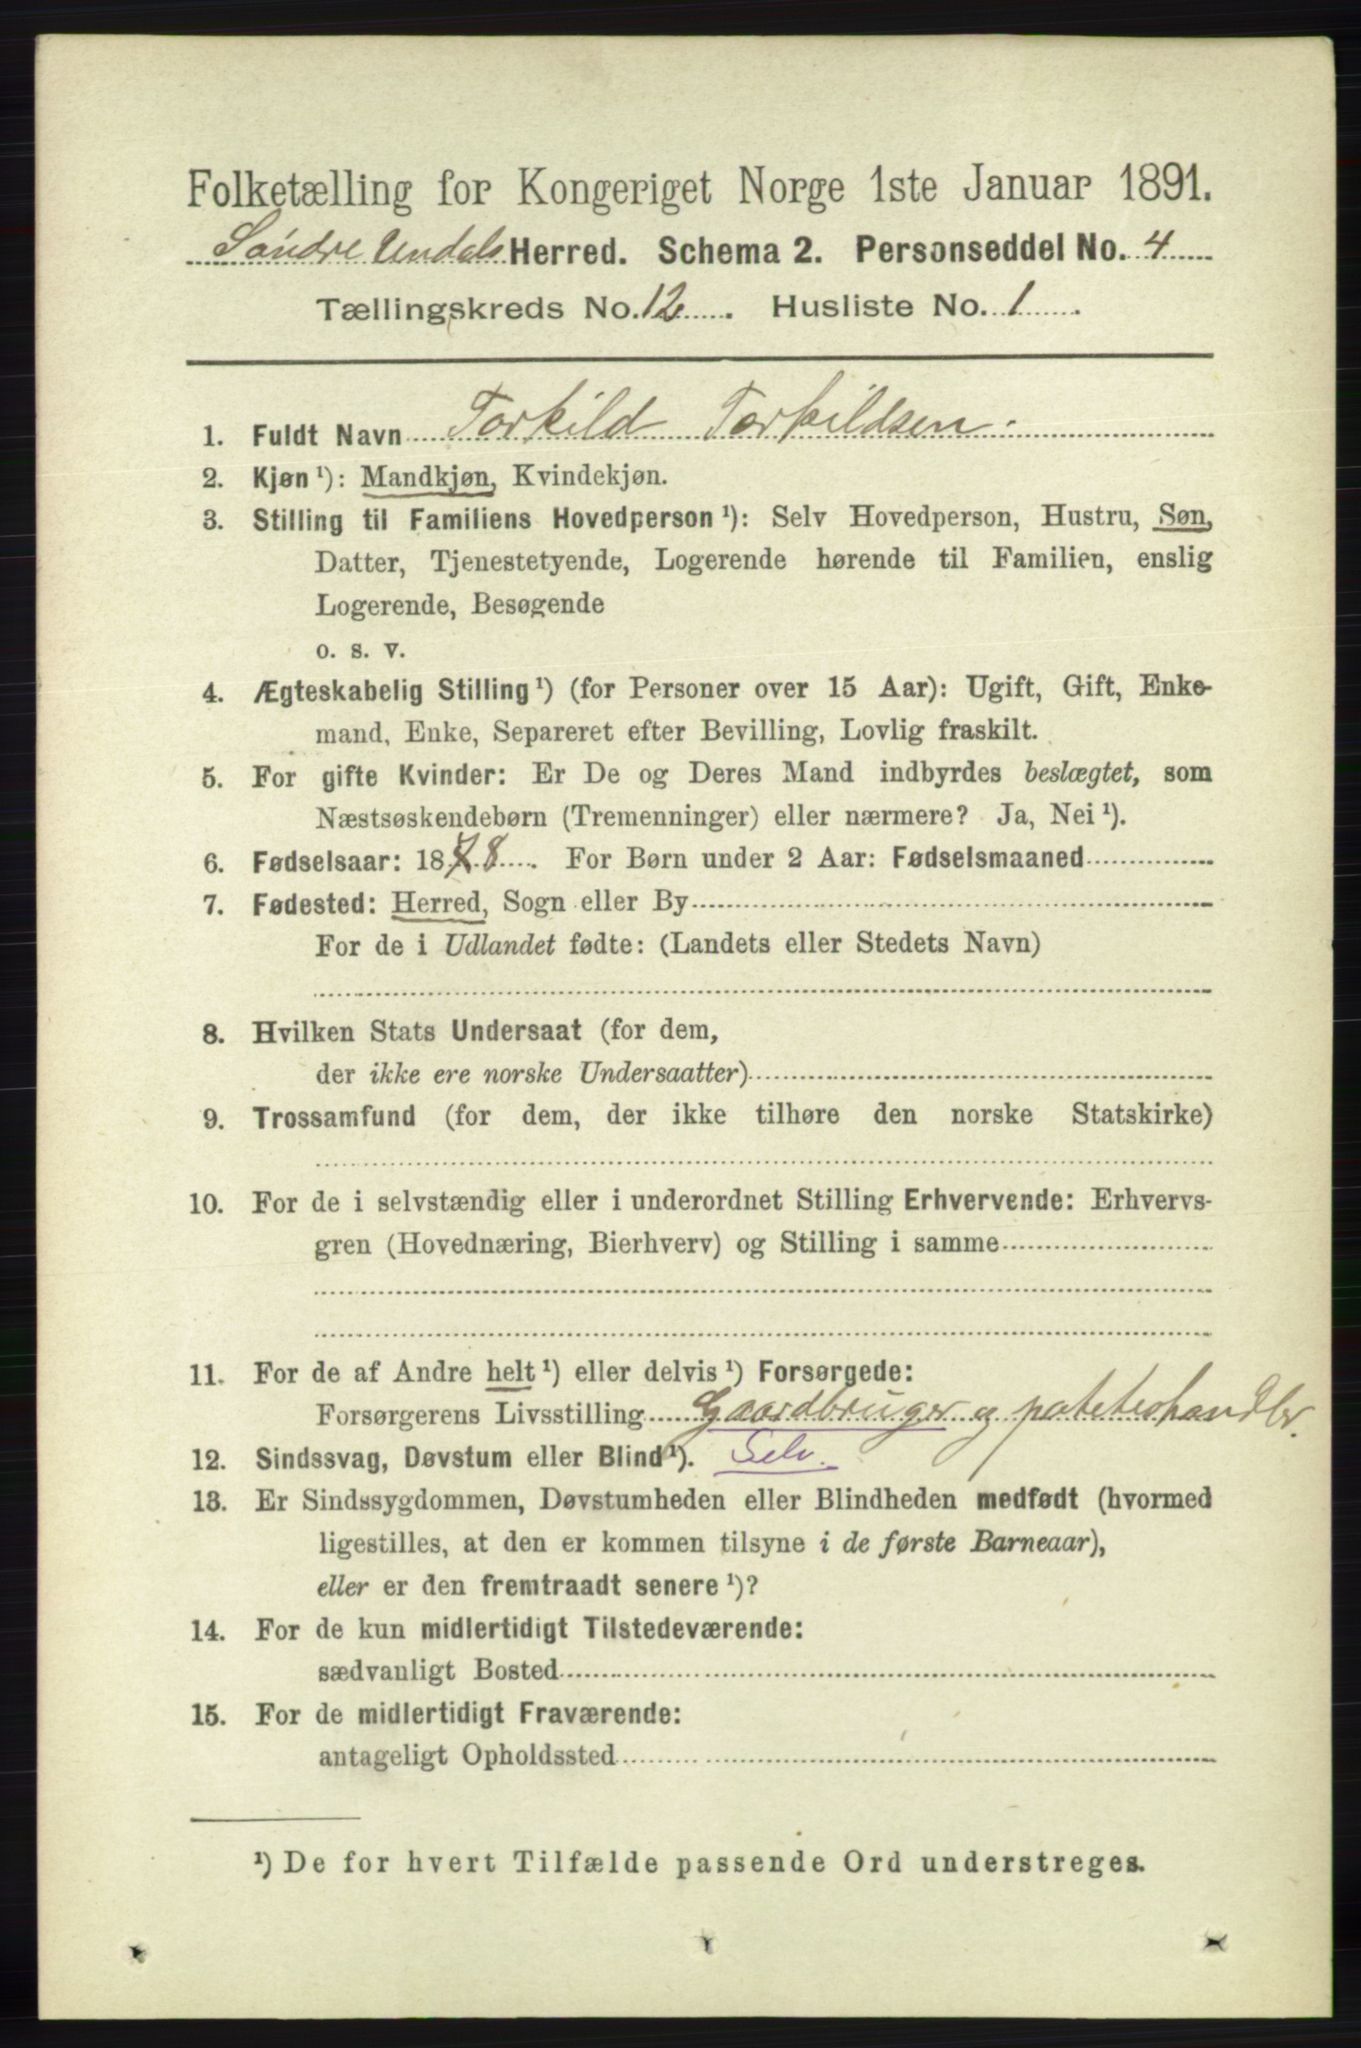 Folketælling for Kongeriget Norge 1ste Januar 1891.
Søndre Undals Herred. Schema 2. Personseddel No. 4
Tællingskreds No. 12. Husliste No. 1.
1. Fuldt Navn Torkild Torkildsen.
2. Kjøn ¹): Mandkjøn, Kvindekjøn.
3. Stilling til Familiens Hovedperson ¹): Selv Hovedperson, Hustru, Søn,
Datter, Tjenestetyende, Logerende hørende til Familien, enslig
Logerende, Besøgende
o. s. v.
4. Ægteskabelig Stilling ¹) (for Personer over 15 Aar): Ugift, Gift, Enke-
mand, Enke, Separeret efter Bevilling, Lovlig fraskilt.
5. For gifte Kvinder: Er De og Deres Mand indbyrdes beslægtet, som
Næstsøskendebørn (Tremenninger) eller nærmere? Ja, Nei ¹).
6. Fødselsaar: 1878. For Børn under 2 Aar: Fødselsmaaned
7. Fødested: Herred, Sogn eller By
For de i Udlandet fødte: (Landets eller Stedets Navn)
8. Hvilken Stats Undersaat (for dem,
der ikke ere norske Undersaatter)
9. Trossamfund (for dem, der ikke tilhøre den norske Statskirke)
10. For de i selvstændig eller i underordnet Stilling Erhvervende: Erhvervs-
gren (Hovednæring, Bierhverv) og Stilling i samme
11. For de af Andre helt ¹) eller delvis ¹) Forsørgede:
Forsørgerens Livsstilling Gaardbruger og
12. Sindssvag, Døvstum eller Blind ¹). Selv.
13. Er Sindssygdommen, Døvstumheden eller Blindheden medfødt (hvormed
ligestilles, at den er kommen tilsyne i de første Barneaar),
eller er den fremtraadt senere ¹)?
14. For de kun midlertidigt Tilstedeværende:
sædvanligt Bosted
15. For de midlertidigt Fraværende:
antageligt Opholdssted
¹) De for hvert Tilfælde passende Ord understreges.